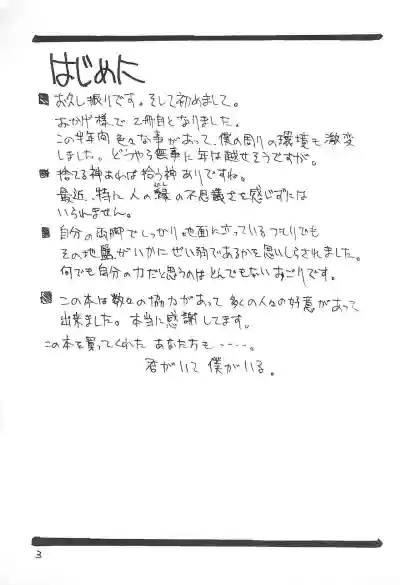 はじめに
お久し振りです。そして初めまして。
おかげ様で2冊目となりました。
この半年間色々な事があって、僕の周りの環境も激変
しました。どうやら無事に年は越せそうですが。
捨てる神あれば拾う神ありですね。
最近、特に人の縁の不思議さを感じずには
いられません。
自分の両脚でしっかり地面に立っているつもりでも
その地盤がいかにぜい弱であるかを思いしらされました。
何でも自分の力だと思うのはとんでもないおごりです。
この本は数々の協力があって多くの人々の好意があって
出来ました。本当に感謝してます。
この本を買ってくれたあなた方も・・・・・。
君がいて僕がいる。
3